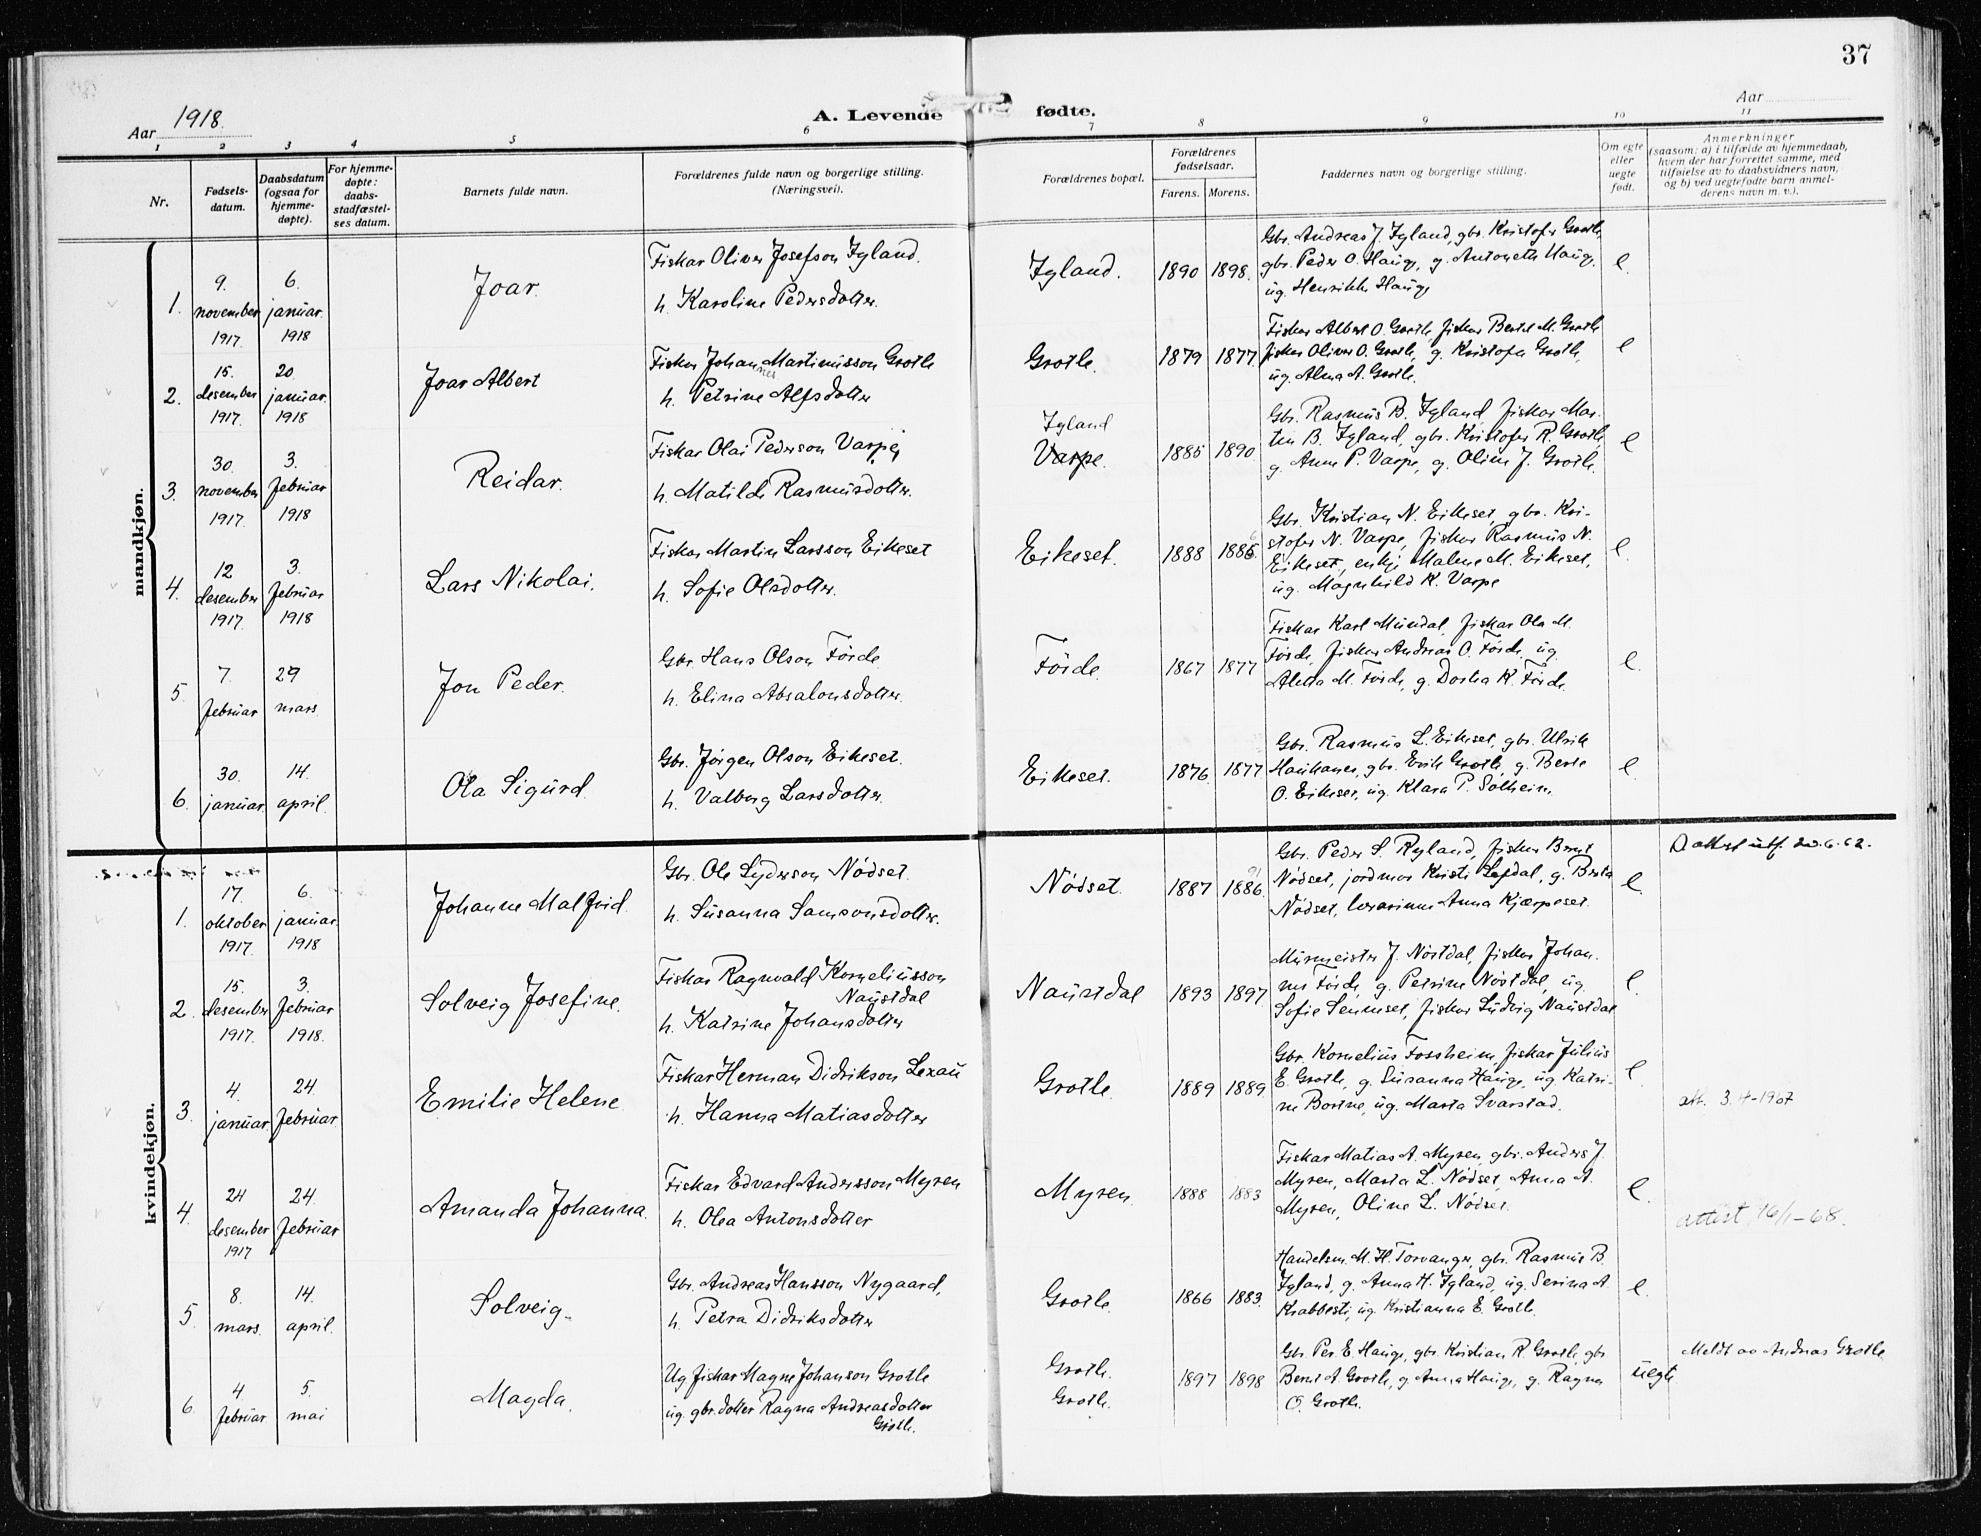 37
Aar 1918.
A. Levende fødte.
Aar
1 2 3 4 5 6 7 8 9 10 11
Nr.
Fødsels-
datum.
Daabsdatum
(ogsaa for
hjemme-
døpte).
For hjemme-
døpte:
daabs-
stadfæstel-
ses datum.
Barnets fulde navn.
Forældrenes fulde navn og borgerlige stilling.
(Næringsvei).
Forældrenes bopæl.
Forældrenes
fødselsaar.
Farens. Morens.
Faddernes navn og borgerlige stilling.
Om egte
eller
uegte
født.
Anmerkninger
(saasom: a) i tilfælde av hjemmedaab,
hvem der har forrettet samme, med
tilføielse av to daabsvidners navn,
og b) ved uegtefødte barn anmel-
derens navn m. v.).
mandkjøn.
1.
9.
november
1917.
6.
januar.
1918
Joar.
Fiskar Oliver Josefson Iglan​d.
h. Karoline Pedersdotter.
Igland.
1890 1898.
Gbr. Andreas J. Igland, gbr. Kristofer Grotle,
gbr. Peder O. Hauge, g. Antonette Hauge,
ug. Henrikke Hauge
e.
2.
15.
desember
1917.
20.
januar.
1918
Joar Albert
Fiskar Johannes Martinusson Grotle
h. Petrine Alfsdotter
Grotle.
1879 1877.
Fiskar Albert O. Grotle, fiskar Bertel M. Grotle
fiskar Oliver O. Grotle, g. Kristofer Grotle,
ug. Alma A. Grotle.
e
3.
30.
november
1917.
3.
februar
1918
Reidar.
Fiskar Olai Pederson Varpe,
h. Matilde Rasmusdotter.
Igland
Varpe.
1885 1890
Gbr. Rasmus B. Igland, fiskar Mar-
tin B. Igland, gbr. Kristofer R. Grotle,
g. Anne P. Varpe, g. Oline J. Grotle.
e
4.
12
desember
1917.
3.
februar
1918
Lars Nikolai.
Fiskar Martin Larsson Eikeset
h. Sofie Olsdotter.
Eikeset.
1888 1886
Gbr. Kristian N. Eikeset, gbr. Kri-
stofer N. Varpe, fiskar Rasmus N.
Eikeset, enkje Malene M. Eikeset,
ug. Magnhild K. Varpe
e.
5.
7.
februar
29
mars.
Jon Peder.
Gbr. Hans Olson Förde
h. Elina Absalonsdotter.
Förde.
1867 1877
Fiskar Karl Mundal, fiskar Ole M.
Förde, fiskar Andreas O. Förde, ug.
Aletta M. Förde, g. Dortea K. Förde.
e.
6.
30.
januar.
14.
april.
Ola Sigurd.
Gbr. Jörgen Olson Eikeset.
h. Valborg Larsdotter.
Eikeset.
1876. 1877
Gbr. Rasmus L. Eikeset, gbr. Ulrik
Haukanes, gbr. Erik Grotle, g. Berte
O. Eikeset, ug. Klara P. Solheim.
e.
kvindekjøn.
1.
17.
oktober
1917.
6.
januar.
1918
Johanne Malfrid.
Gbr. Ole Lyderson Nödset.
h. Susanna Samsonsdotter.
Nödset.
1887 1886.
91
Gbr. Peder S. Ryland, fiskar Bernt
Nödset, jordmor Kristi Lefdal, g. Berta
Nödset, lærarinne Anna Kjærpeset.
e.
D. attest utf. 20.6.62.
2.
15.
desember
1917.
3.
februar
1918.
Solveig Josefine.
Fiskar Ragnvald Korneliusson
Naustdal
h. Katrine Johansdotter
Naustdal
1893 1897.
Murmeister J. Nöstdal, fiskar Johan-
nes Förde, g. Petrine Nöstdal, ug.
Sofie Senneset, fiskar Ludvig Naustdal
e.
3.
4.
januar.
24
februar.
Emilie Helene
Fiskar Herman Didrikson Lexau
h. Hanna Matiasdotter
Grotle.
1889 1889.
Gbr. Kornelius Fossheim, fiskar Julius
E. Grotle, g. Susanna Hauge, ug. Katri-
ne Bortne, ug. Marta Svarstad.
e
att. 3.4-1967
4.
24
desember
1917
24.
februar
Amanda Johanna.
Fiskar Edvard Andersson Myren
h. Olea Antonsdotter
Myren.
1888 1883
Fiskar Matias A. Myren, gbr. Anders J.
Myren, Marta L. Nödset, Anna A.
Myren, Oline L. Nödset.
e.
attest 16/1-68.
5.
8.
mars.
14.
april.
Solveig.
Gbr. Andreas Hansson Nygaard,
h. Petra Didriksdotter
Grotle.
1866 1883.
Handelsm. M. H. Torvanger, gbr. Rasmus B.
Igland, g. Anna H. Igland, ug. Serina A.
Krabbesti, ug. Kristianna E. Grotle.
e.
6.
4
februar.
5.
mai
Magda.
Ug. fiskar Magne Johanson Grotle
ug. gbr.dotter Ragna Andreasdotter
Grotle.
Grotle.
Grotle.
1897 1898
Gbr. Per E. Hauge, gbr. Kristian R. Grotle, gbr.
Bernt A. Grotle, g. Anna Hauge, g. Ragna
O. Grotle.
uegte
Meldt av Andreas Grotle.